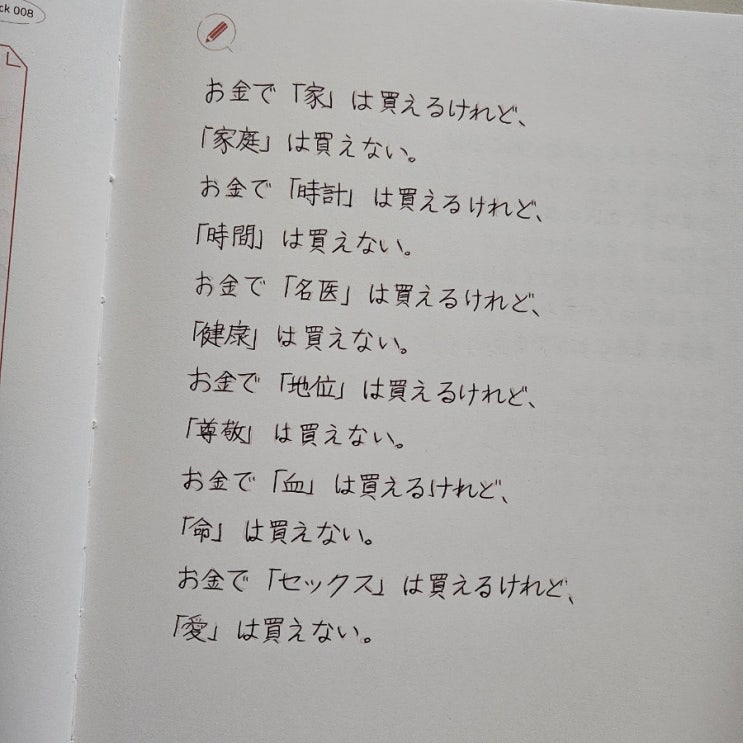 ck 008
お金で「家」は買えるけれど、
「家庭」は買えない。
お金で「時計」は買えるけれど、
「時間」は買えない。
お金で「名医」は買えるけれど、
「健康」は買えない。
お金で「地位」は買えるけれど、
「尊敬」は買えない。
お金で「血」は買えるけれど、
「命」は買えない。
お金で「セックス」は買えるけれど、
「愛」は買えない。